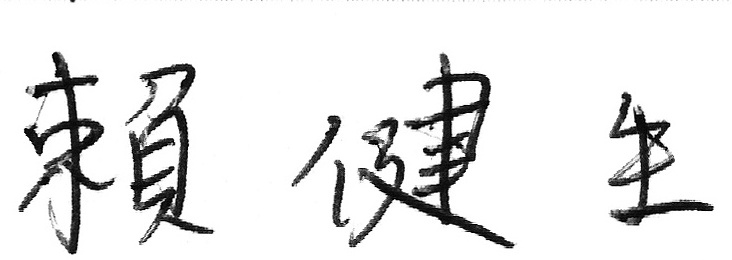 賴 健 生